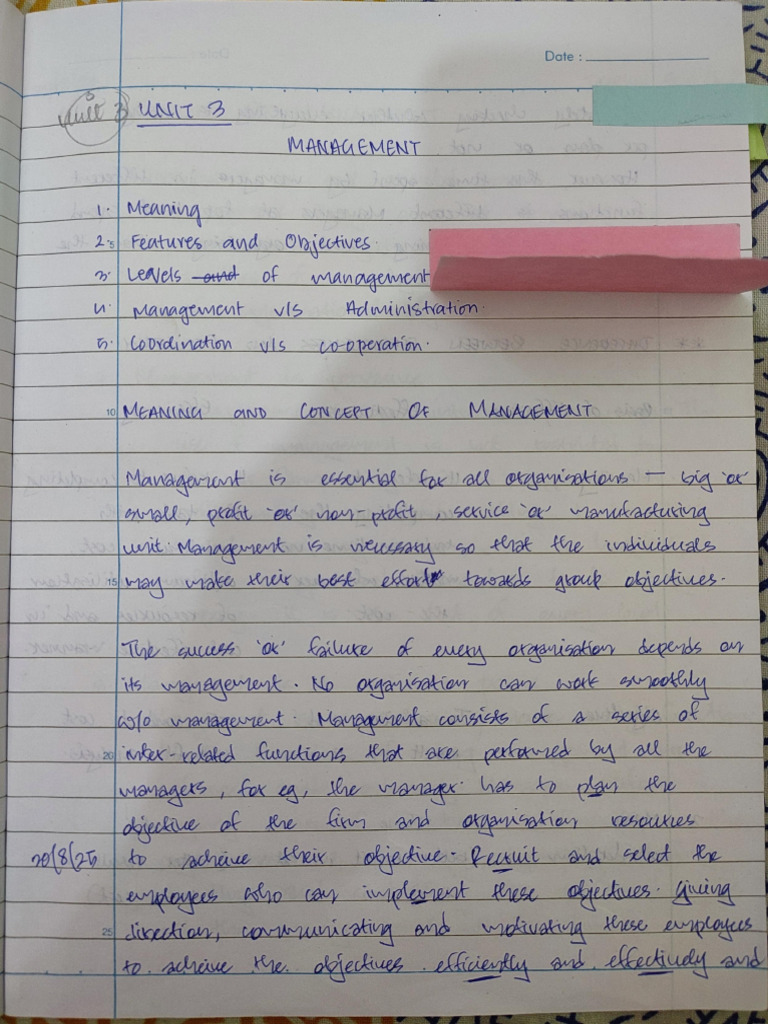 Date :
Unit 3 UNIT 3
MANAGEMENT
1. Meaning
2. Features and Objectives.
3. Levels and of management
4. Management v/s Administration.
5. Coordination v/s co-operation.
10 MEANING AND CONCEPT OF MANAGEMENT
Management is essential for all organisations — big 'or'
small, profit 'or' non-profit, service 'or' manufacturing
unit. Management is necessary so that the individuals
15 may make their best effort towards group objectives.
The success 'or' failure of every organisation depends on
its management. No organisation can work smoothly
w/o management. Management consists of a series of
20 inter-related functions that are performed by all the
managers, for eg, the manager has to plan the
objective of the firm and organisation resources
20/8/25 to acheive their objective. Recruit and select the
employees who can implement these objectives. Giving
25 direction, communicating and motivating these employees
to acheive the objectives efficiently and effectively and